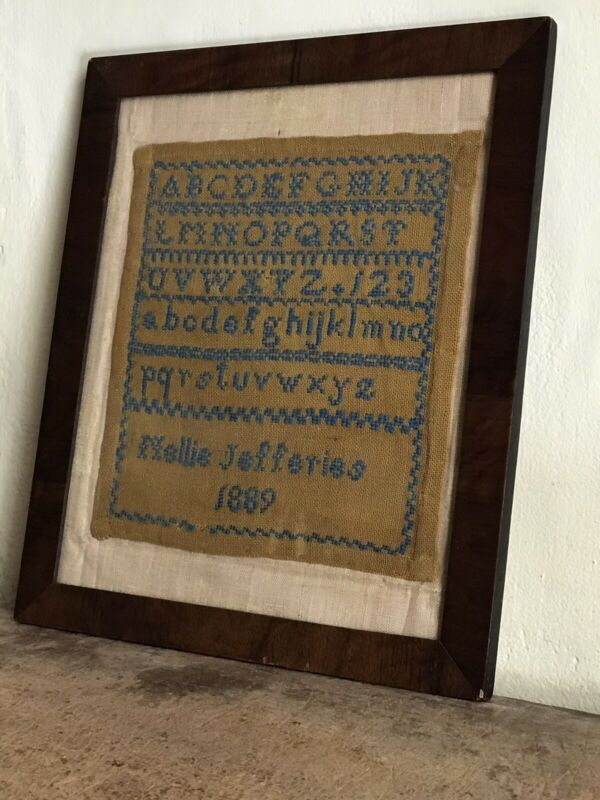 ABCDEFGHIJK
LMNOPQRST
UVWXYZ.123
abcdefghijklmno
pqrstuvwxyz
Nellie Jefferies
1889